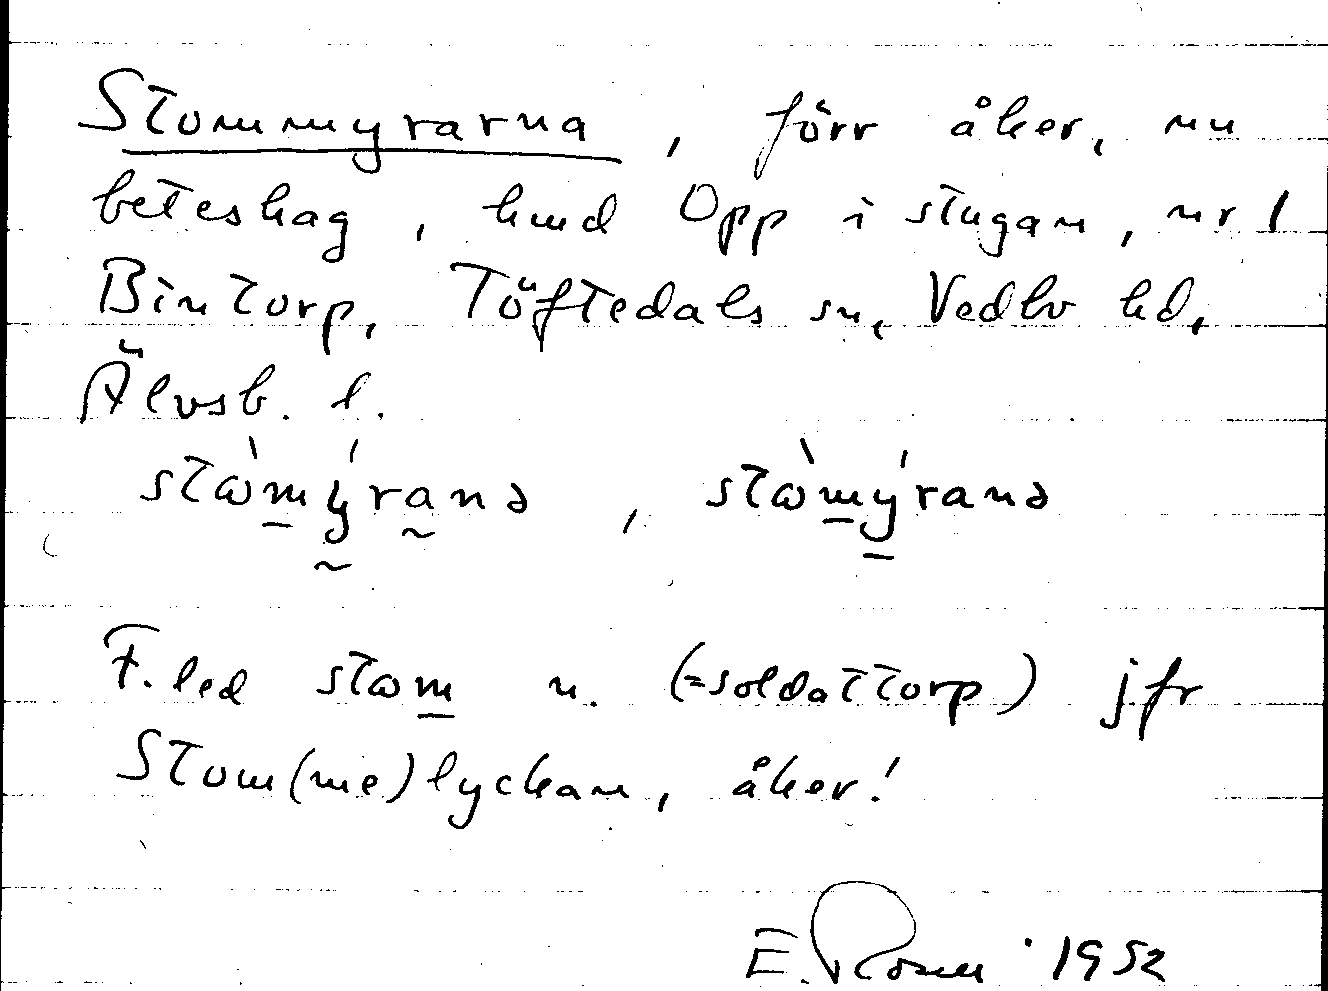 Stommyrarna, förr åker, nu
beteshag, hmd Opp i stugan, nr 1
Bintorp, Töftedals sn, Vedbo hd,
Älvsb. l.
stòmýranə, stòmýranə
F. led stom n. (=soldattorp) jfr
Stom(me)lyckan, åker!
E. Rosell 1952